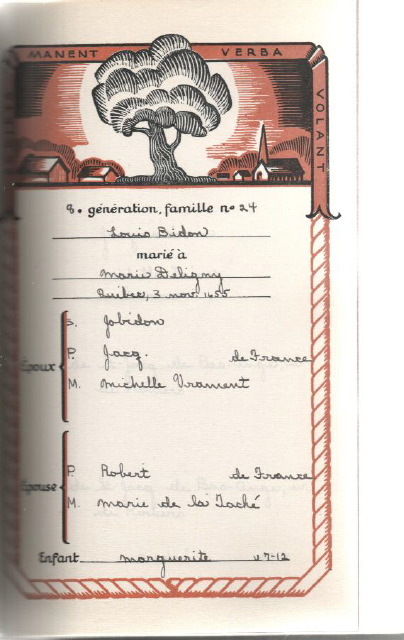 MANENT VERBA
VOLANT
8e génération, famille no 24
Louis Bidon
marié à
Marie Deligny
Québec, 3 nov. 1655
S. Jobidon
Époux
P. Jacq. de France
M. Michelle Vrament
P. Robert de France
Épouse
M. Marie de la Taché
Enfant Marguerite V-7-12